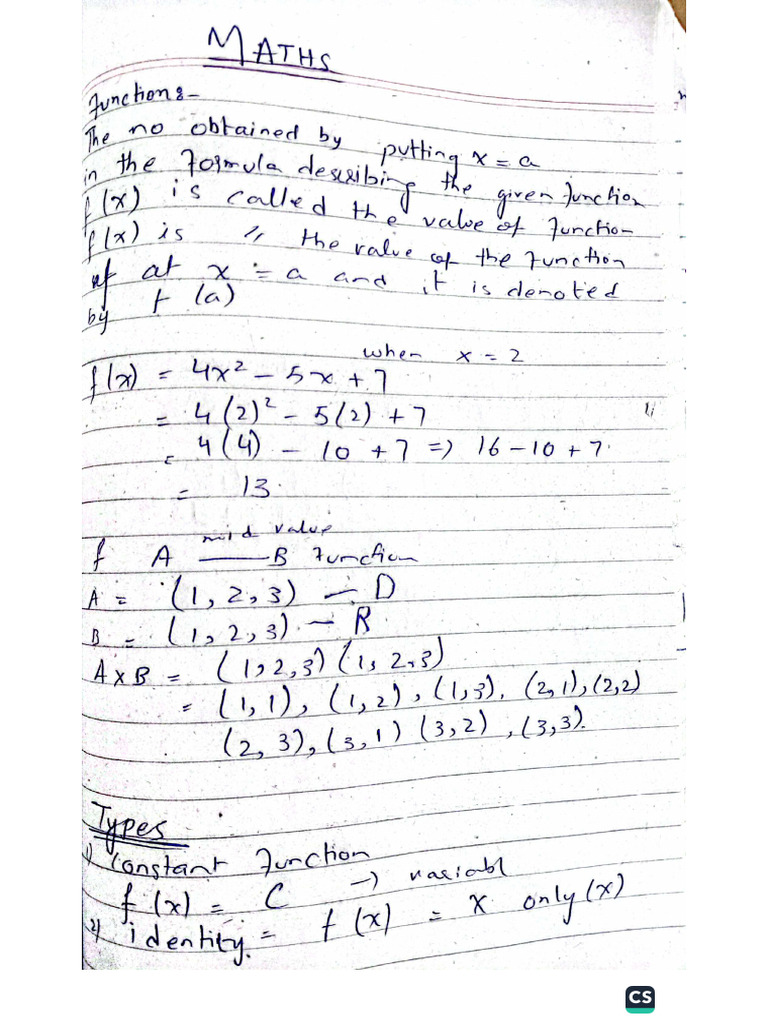 MATHS
Function :-
The no obtained by putting x = a
in the formula describing the given function
f(x) is called the value of function
f(x) is 〃 the value of the function
at at x = a and it is denoted
by f (a)
when x = 2
f(x) = 4x² - 5x + 7
= 4(2)² - 5(2) + 7
= 4(4) - 10 + 7 => 16 - 10 + 7.
= 13.
mid value
f A —— B function
A = (1, 2, 3) — D
B = (1, 2, 3) — R
A x B = (1, 2, 3) (1, 2, 3)
= (1, 1), (1, 2), (1, 3), (2, 1), (2, 2)
(2, 3), (3, 1) (3, 2), (3, 3).
Types
1) Constant function
f (x) = C → variabl
2) identity = f (x) = x only (x)
CS